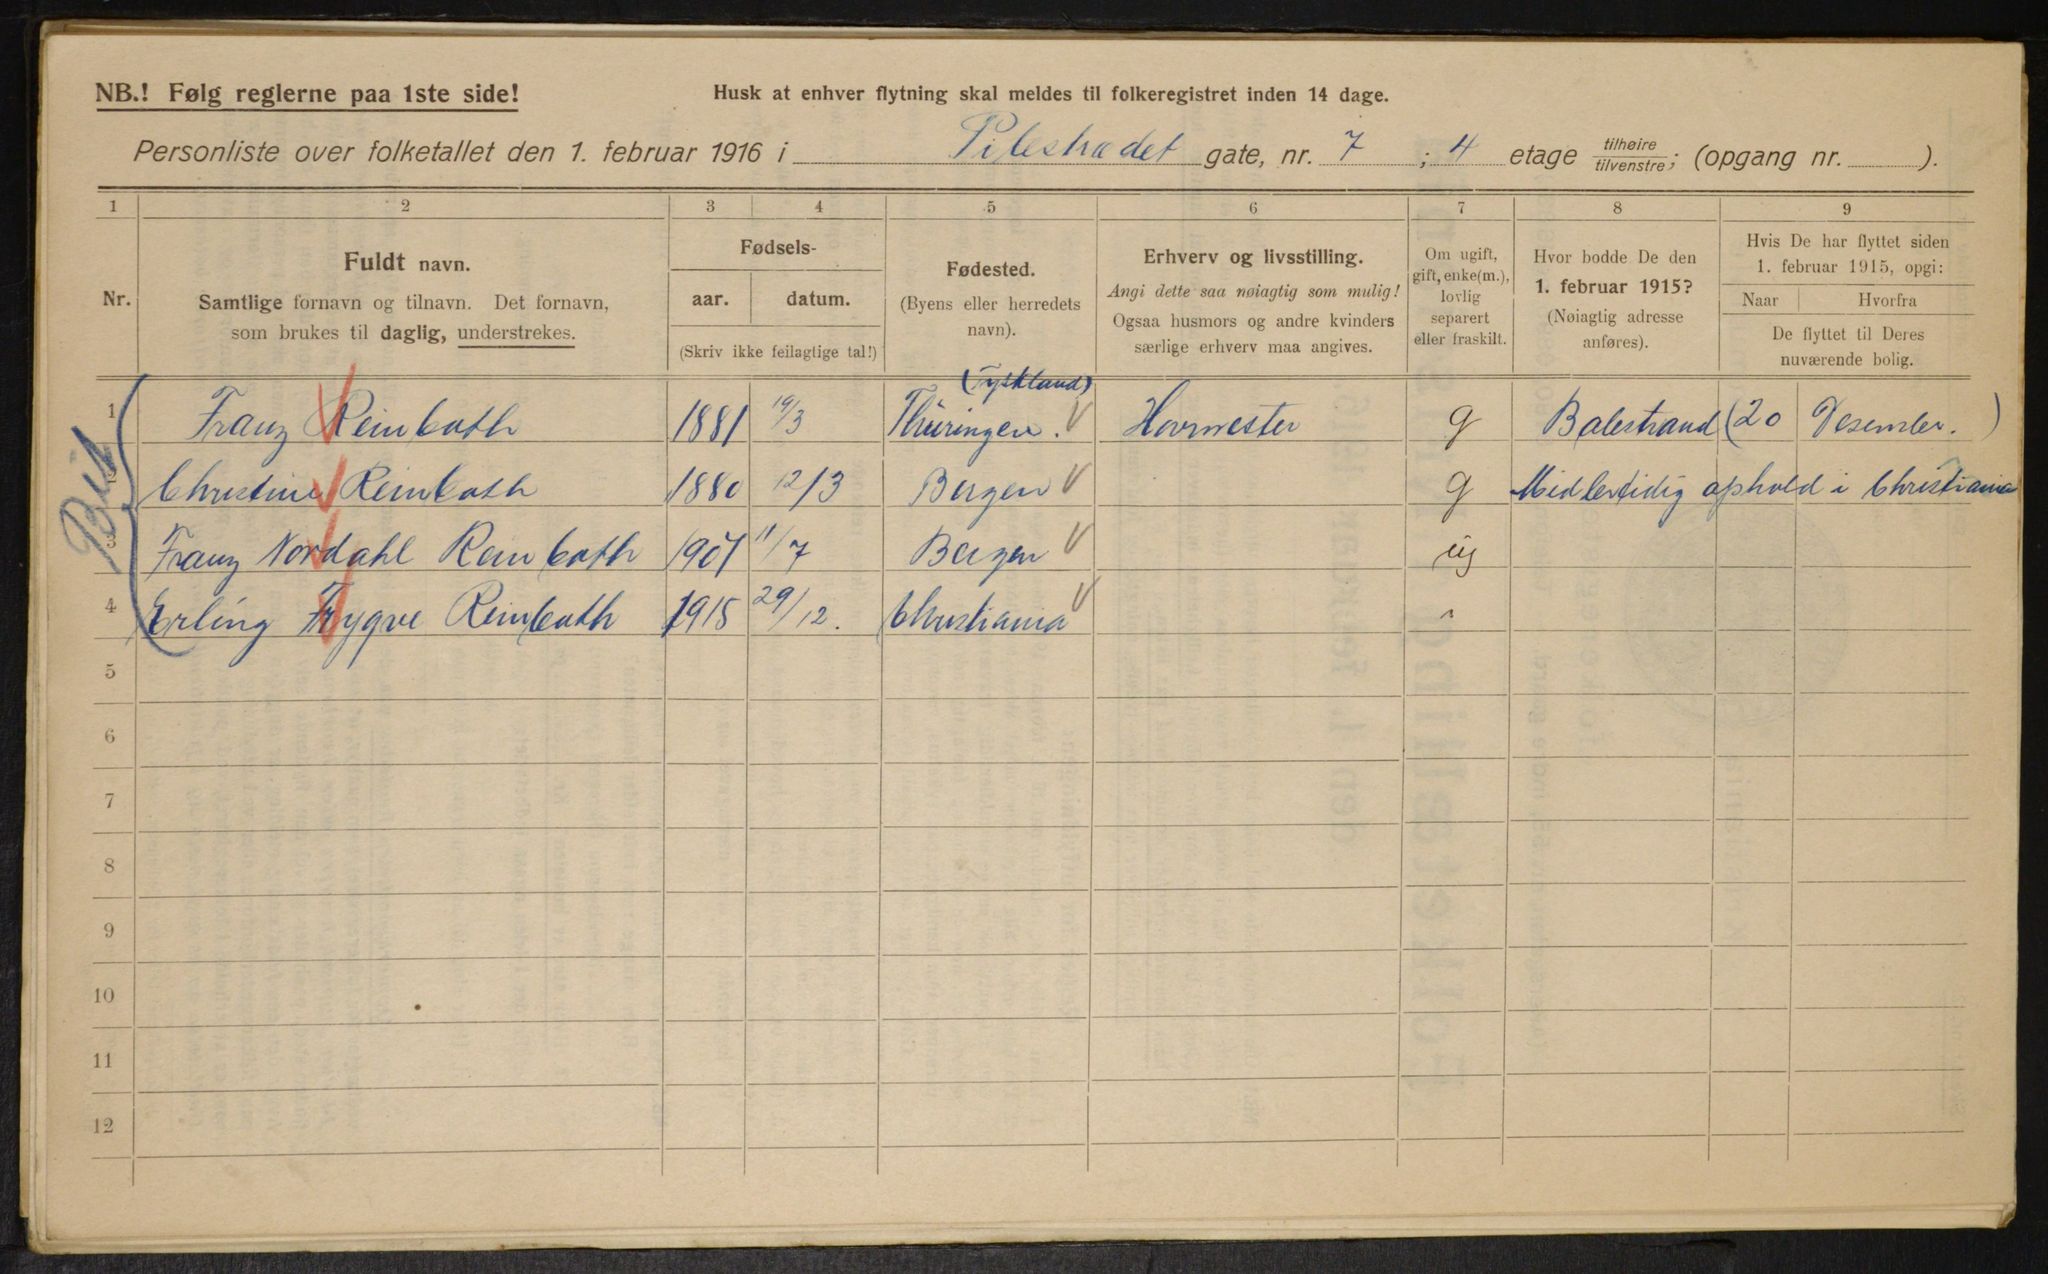 NB.! Følg reglerne paa 1ste side!
Husk at enhver flytning skal meldes til folkeregistret inden 14 dage.
Personliste over folketallet den 1. februar 1916 i Pilestrædet gate, nr. 7 ; 4 etage tilhøire/tilvenstre; (opgang nr. ).
1 2 3 4 5 6 7 8 9
Nr.
Fuldt navn.
Samtlige fornavn og tilnavn. Det fornavn,
som brukes til daglig, understrekes.
Fødsels-
aar. datum.
(Skriv ikke feilagtige tal!)
Fødested.
(Byens eller herredets
navn).
Erhverv og livsstilling.
Angi dette saa nøiagtig som mulig!
Ogsaa husmors og andre kvinders
særlige erhverv maa angives.
Om ugift,
gift, enke(m.),
lovlig
separert
eller fraskilt.
Hvor bodde De den
1. februar 1915?
(Nøiagtig adresse
anføres).
Hvis De har flyttet siden
1. februar 1915, opgi:
Naar Hvorfra
De flyttet til Deres
nuværende bolig.
(Tyskland)
1 Franz Reinboth 1881 19/3 Thüringen. g Balestrand (20 Desember.)
Christine Reinboth 1880 12/3 Bergen g Midlertidig ophold i Christiania
3 Franz Nordahl Reinboth 1907 11/7 Bergen ug
4 Erling Trygve Reinboth 1915 29/12. Christiania "
5
6
7
8
9
10
11
12